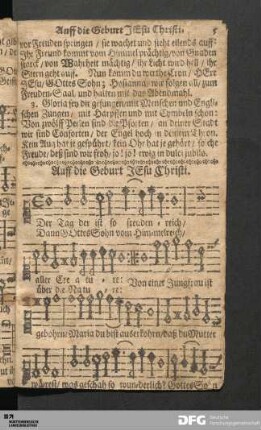 Auff die Geburt JEsu Christi. 5
vor Freuden springen / sie wachet und steht eilends auff:
Ihr Freund kommt vom Himmel prächtig / von Gnaden
starck / von Wahrheit mächtig / ihr Licht wird hell / ihr
Stern geht auff. Nun komm du werthe Kron / HErr
JEsu / GOttes Sohn; Hosianna / wir folgen all / zum
Freuden-Saal und halten mit das Abendmahl.
3. Gloria sey dir gesungen / mit Menschen und Engli-
schen Zungen / mit Harpffen und mit Cymbeln schon:
Von zwölff Perlen sind die Pforten / an deiner Stadt
wir sind Consorten / der Engel hoch in deinem Thron.
Kein Aug hat je gespührt / kein Ohr hat je gehört / so che
Freude / deß sind wir froh / jo / jo / ewig in dulci jubilo.
Auff die Geburt JEsu Christi.
Der Tag der ist so freuden reich /
Dann GOttes Sohn vom Himmelreich /
aller Crea tu re: Von einer Jungfrau ist
über die Natu re:
gebohrn / Maria du bist außerkohrn / daß du Mutter
wärest / was geschah so wunderlich? Gottes Soh'n
DFG Deutsche
Forschungsgemeinschaft